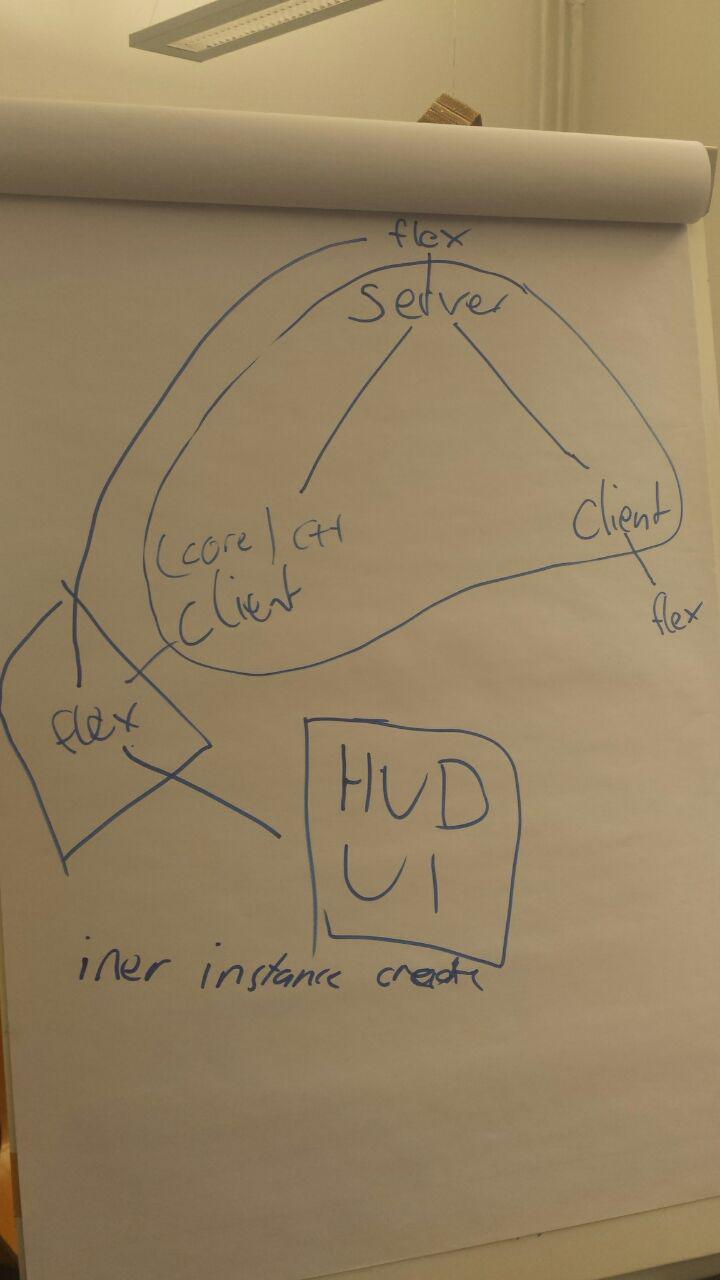 flex
Server
(core) C++
Client
Client
flex
flex
HUD
UI
iner instance create